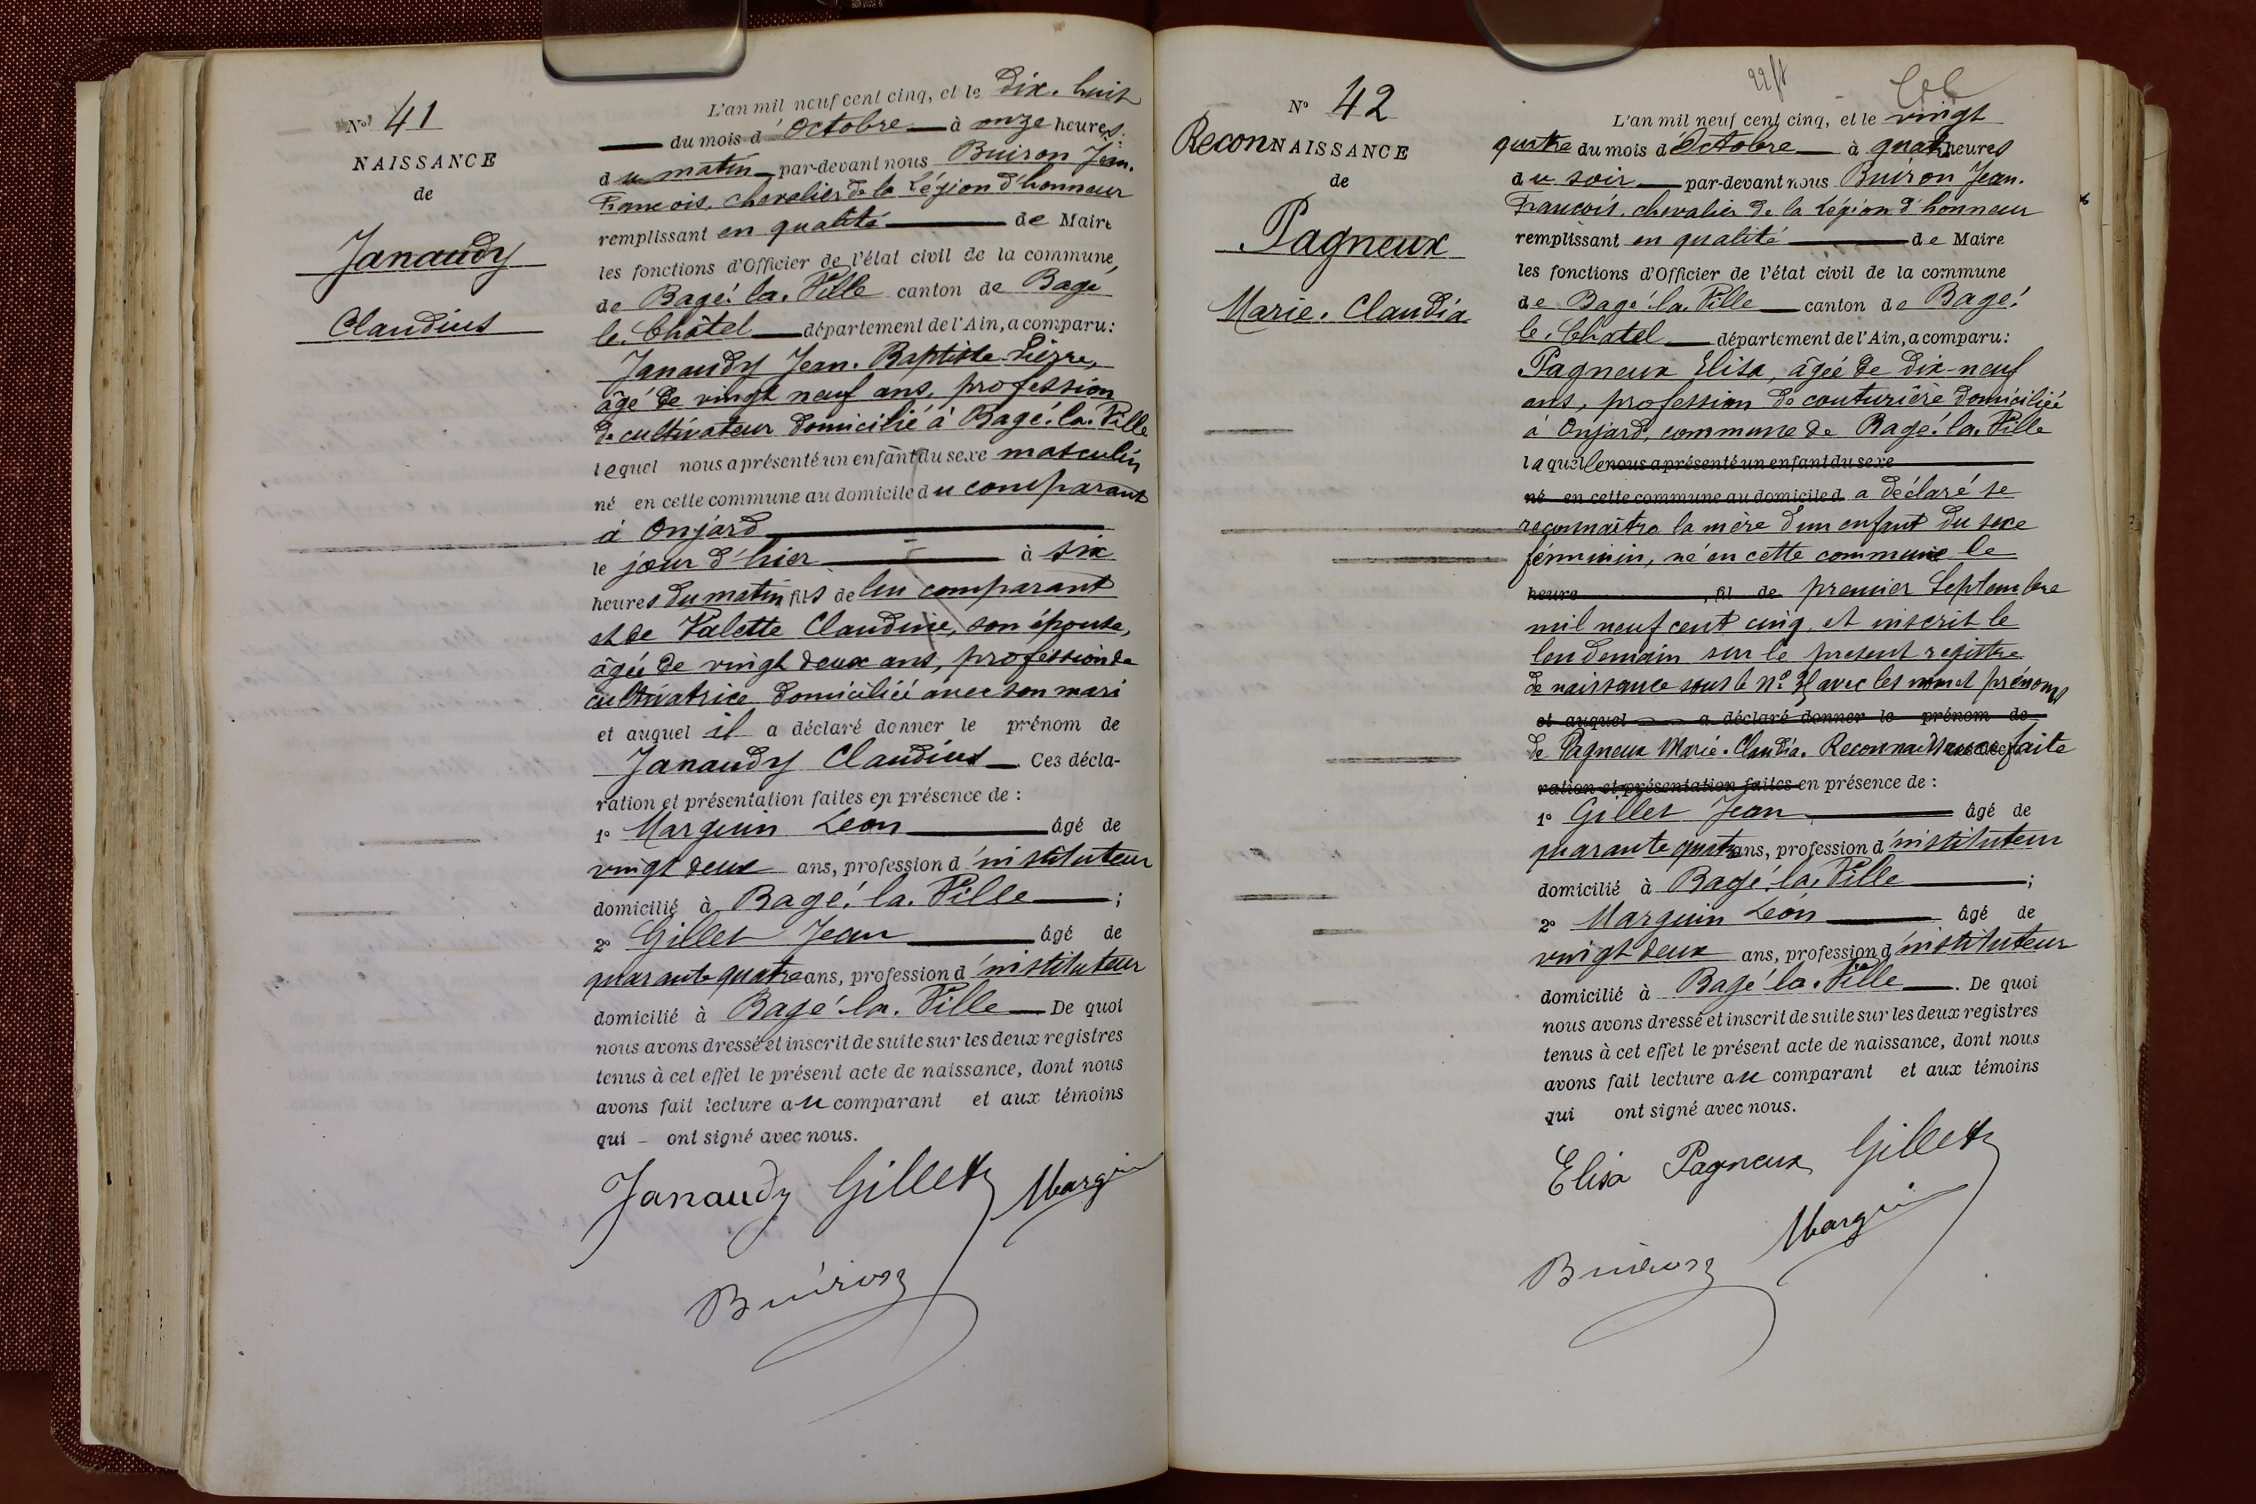 No 41
NAISSANCE
de
Janaudy
Claudius
L'an mil neuf cent cinq, et le dix-huit
du mois d'Octobre à onze heures
du matin par-devant nous Buiron Jean-
François, chevalier de la Légion d'honneur
remplissant en qualité de Maire
les fonctions d'Officier de l'état civil de la commune
de Bagé-la-Ville canton de Bagé
le-Châtel département de l'Ain, a comparu:
Janaudy Jean-Baptiste Pierre,
âgé de vingt neuf ans, profession
de cultivateur domicilié à Bagé-la-Ville
lequel nous a présenté un enfant du sexe masculin
né en cette commune au domicile du comparant
à Onjard
le jour d'hier à six
heures du matin, fils de lui comparant
et de Valette Claudine, son épouse,
âgée de vingt deux ans, profession de
cultivatrice domiciliée avec son mari
et auquel il a déclaré donner le prénom de
Janaudy Claudius Ces décla-
ration et présentation faites en présence de :
1o Marguin Léon âgé de
vingt deux ans, profession d'instituteur
domicilié à Bagé-la-Ville ;
2o Gillet Jean âgé de
quarante quatre ans, profession d'instituteur
domicilié à Bagé-la-Ville De quoi
nous avons dressé et inscrit de suite sur les deux registres
tenus à cet effet le présent acte de naissance, dont nous
avons fait lecture au comparant et aux témoins
qui ont signé avec nous.
Janaudy Gillet Marguin
Buiron
No 42
ReconNAISSANCE
de
Pagneux
Marie-Claudia
L'an mil neuf cent cinq, et le vingt
quatre du mois d'Octobre à quatre heures
du soir par-devant nous Buiron Jean-
François, chevalier de la Légion d'honneur
remplissant en qualité de Maire
les fonctions d'Officier de l'état civil de la commune
de Bagé-la-Ville canton de Bagé-
le-Chatel département de l'Ain, a comparu:
Pagneux Elisa, âgée de dix-neuf
ans, profession de couturière domiciliée
à Onjard, commune de Bagé-la-Ville
laquelle nous a présenté un enfant du sexe
né en cette commune au domicile d a déclaré se
reconnaître la mère d'un enfant du sexe
féminin, né en cette commune le
heure , fil de premier Septembre
mil neuf cent cinq, et inscrit le
lendemain sur le present registre
de naissance sous le No avec les nom et prénoms
et auquel a déclaré donner le prénom de
de Pagneux Marie-Claudia. Reconnaissance faite
ration et présentation faites en présence de :
1o Gillet Jean âgé de
quarante quatre ans, profession d'instituteur
domicilié à Bagé-la-Ville ;
2o Marguin Léon âgé de
vingt deux ans, profession d'instituteur
domicilié à Bagé-la-Ville . De quoi
nous avons dressé et inscrit de suite sur les deux registres
tenus à cet effet le présent acte de naissance, dont nous
avons fait lecture au comparant et aux témoins
qui ont signé avec nous.
Elisa Pagneux Gillet
Marguin
Buiron